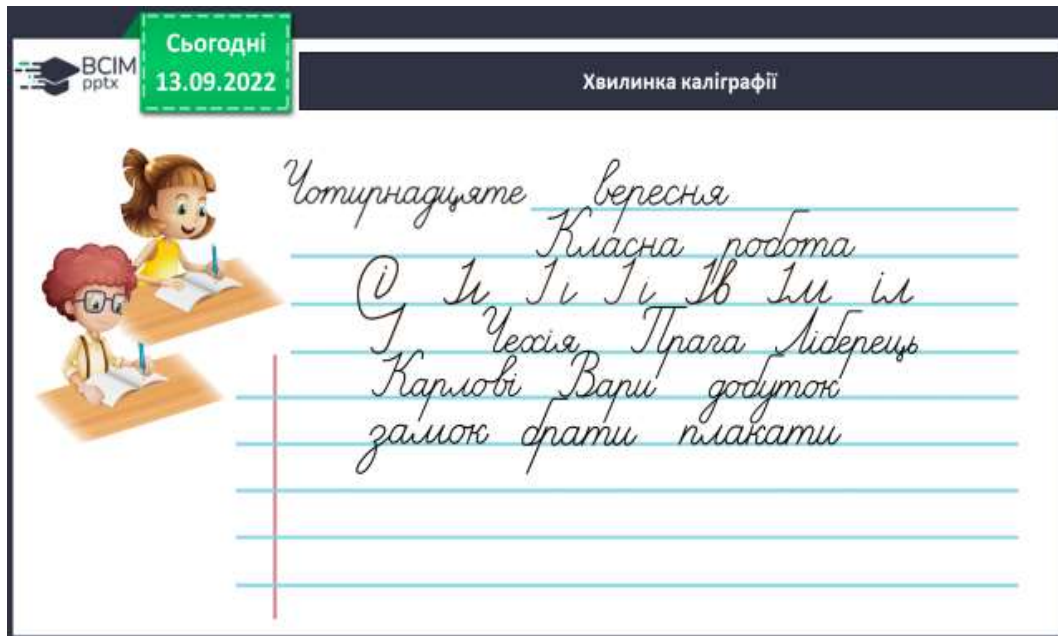 Сьогодні
13.09.2022
BCIM
pptx
Хвилинка каліграфії
Чотирнадцяте вересня
Класна робота
Ії Іі Іі Ів Ім іл
Чехія Прага Ліберець
Карлові Вари добуток
замок брати плакати